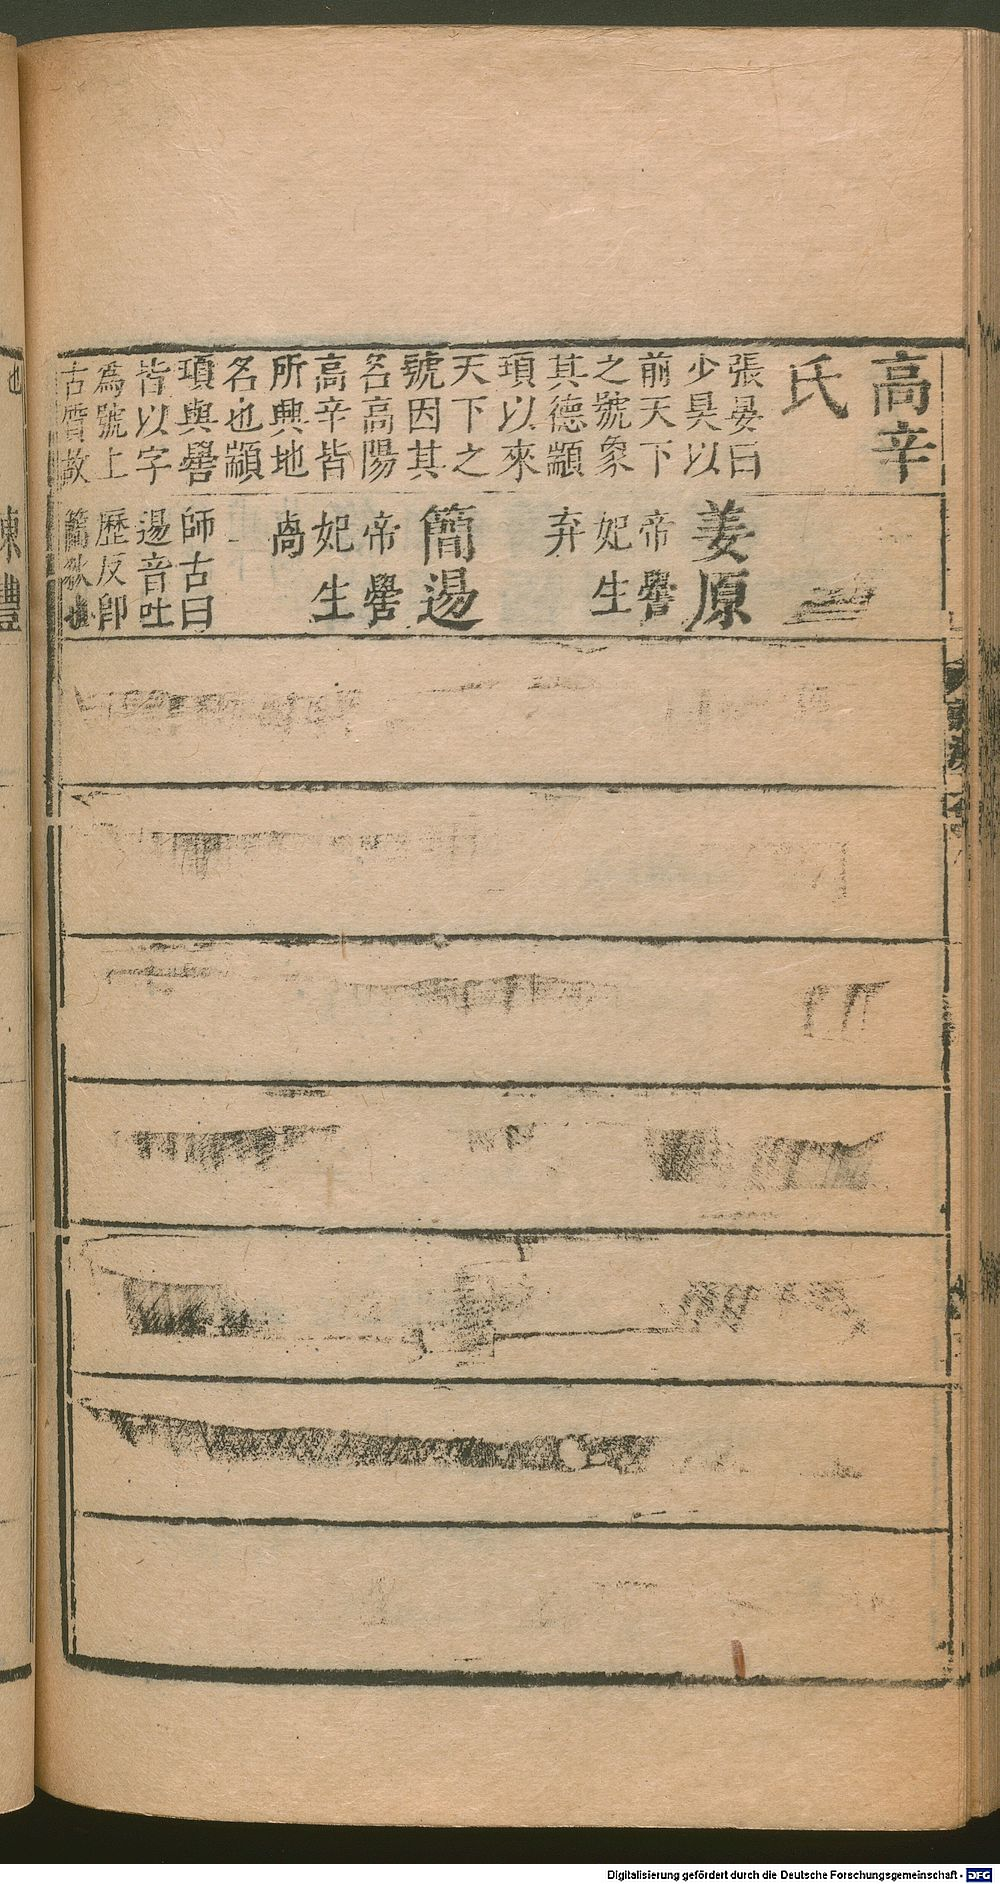 高辛
氏
張晏曰
少昊以
前天下
之號象
其德顓
頊以來
天下之
號因其
名高陽
高辛皆
所興地
名也顓
頊與嚳
皆以字
為號上
古質故
姜原
帝嚳
妃生
弃
簡逷
帝嚳
妃生
卨
師古曰
逷音吐
歷反即
簡狄也
也
Digitalisierung gefördert durch die Deutsche Forschungsgemeinschaft - DFG